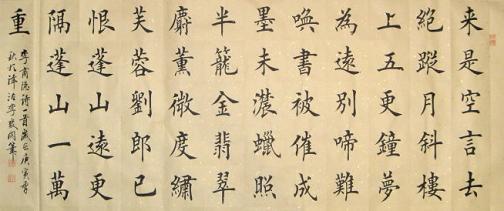 来是空言去
絕蹤月斜樓
上五更鐘夢
為遠別啼難
喚書被催成
墨未濃蠟照
半籠金翡翠
麝薰微度繡
芙蓉劉郎已
恨蓬山遠更
隔蓬山一萬
重
李商隱詩一首歲庚寅
於津沽李